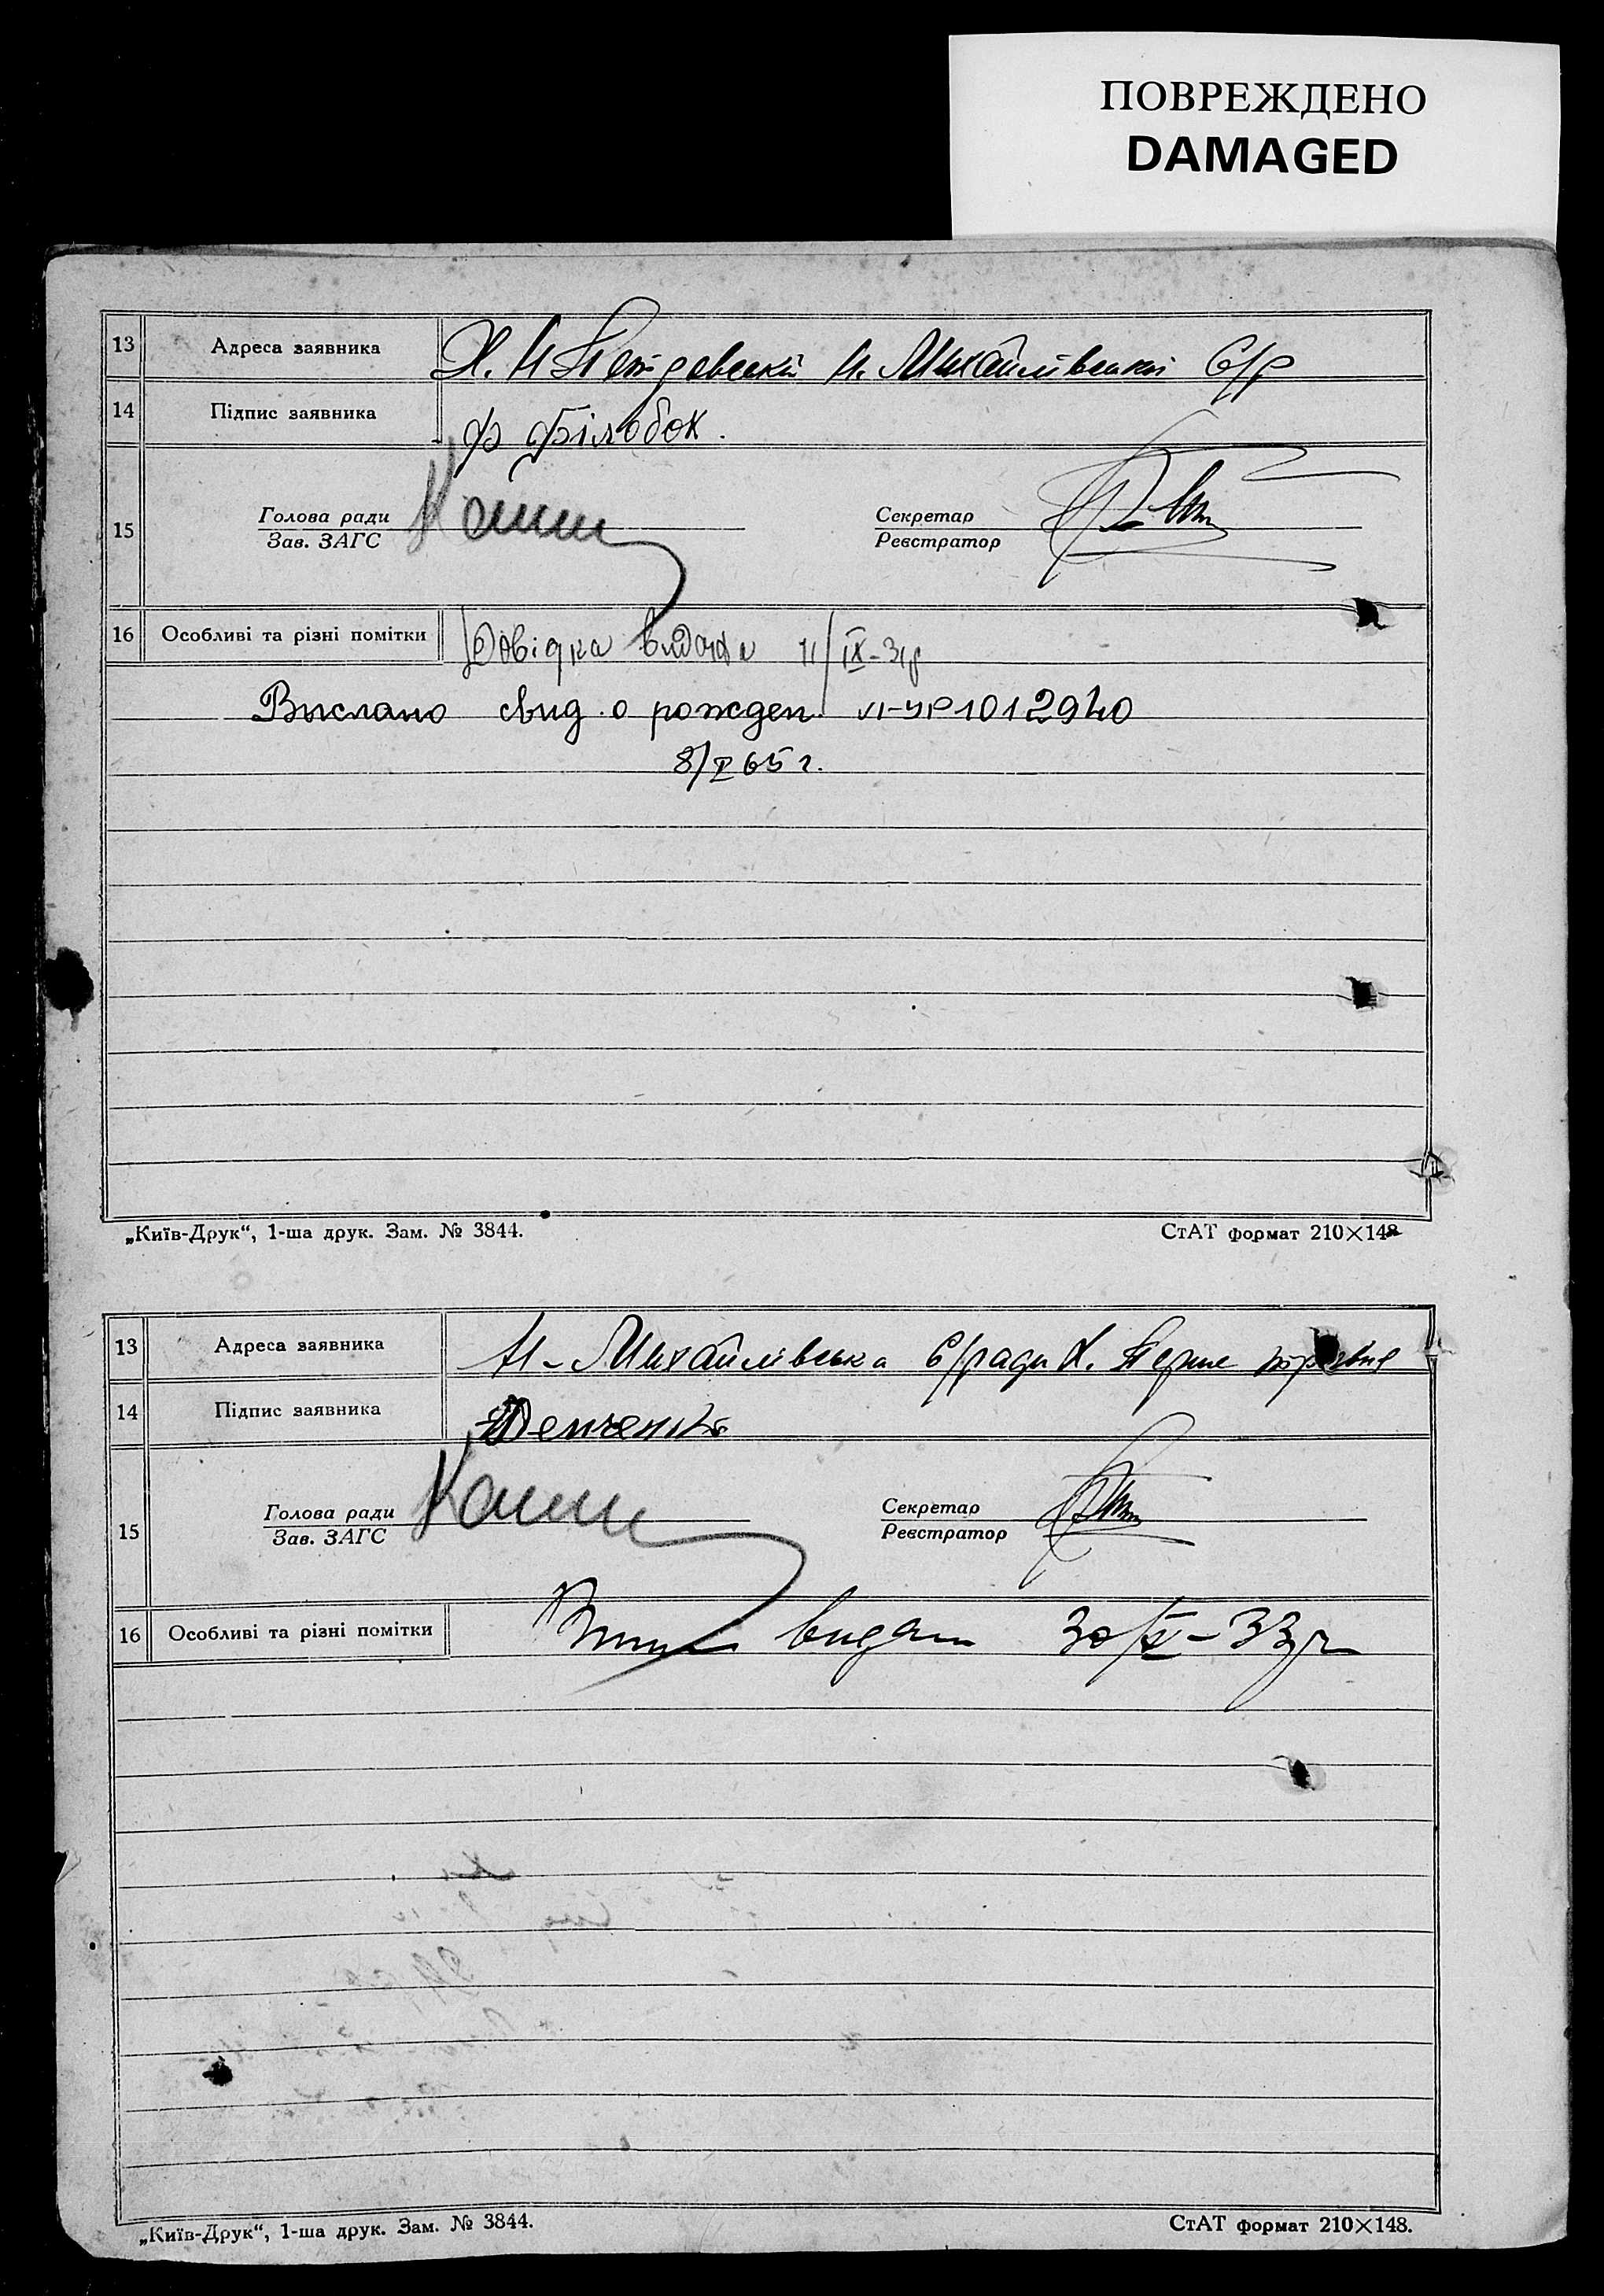 ПОВРЕЖДЕНО
DAMAGED
13 Адреса заявника Х. Н Петровській Н. Михайлівській С/р
14 Підпис заявника Ф Білобок.
15 Голова ради Секретар
Зав. ЗАГС Реєстратор
16 Особливі та різні помітки Довідка видана 11/IX-34р
Выслано свид. о рожден. VI-УР 1012940
8/V 65 г.
„Київ-Друк“, 1-ша друк. Зам. № 3844. СтАТ формат 210×148
13 Адреса заявника Н-Михайлівська С/ради Х. Перше
14 Підпис заявника Демченко
15 Голова ради Секретар
Зав. ЗАГС Реєстратор
16 Особливі та різні помітки видан
„Київ-Друк“, 1-ша друк. Зам. № 3844. СтАТ формат 210×148.